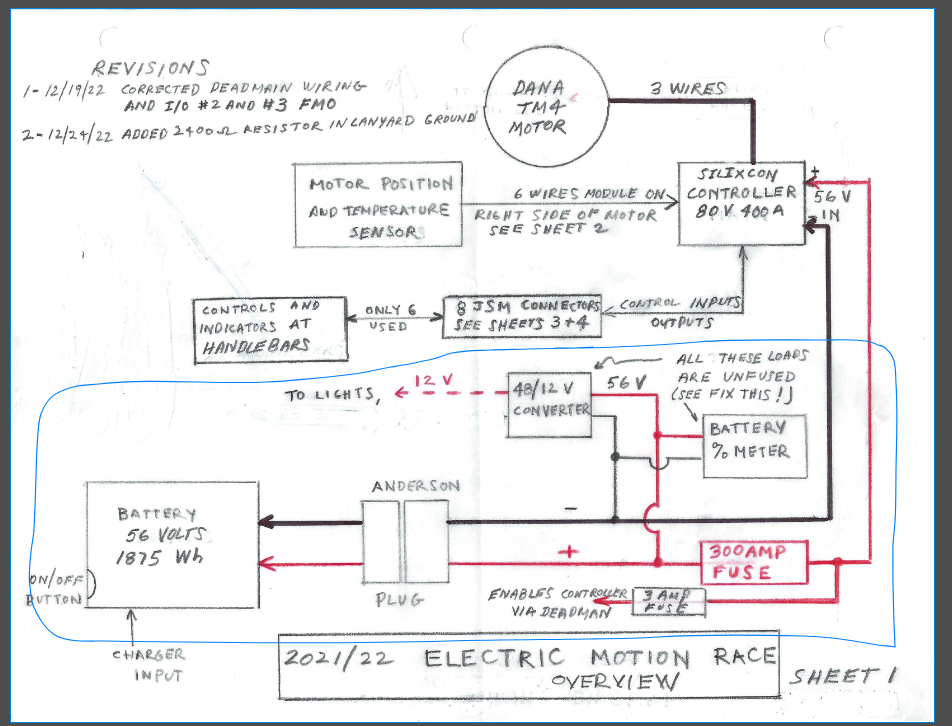 REVISIONS
1-12/19/22 CORRECTED DEADMAIN WIRING
AND I/O #2 AND #3 FMO
2-12/24/22 ADDED 2400Ω RESISTOR IN LANYARD GROUND
DANA
TM4
MOTOR
3 WIRES
MOTOR POSITION
AND TEMPERATURE
SENSOR
6 WIRES MODULE ON
RIGHT SIDE OF MOTOR
SEE SHEET 2
SILIXCON
CONTROLLER
80V 400A
+
56 V
IN
-
CONTROLS AND
INDICATORS AT
HANDLEBARS
ONLY 6
USED
8 JSM CONNECTORS
SEE SHEETS 3+4
CONTROL INPUTS
OUTPUTS
TO LIGHTS,
12 V
48/12 V
CONVERTER
56V
ALL THESE LOADS
ARE UNFUSED
(SEE FIX THIS!)
BATTERY
% METER
BATTERY
56 VOLTS
1875 Wh
ON/OFF
BUTTON
ANDERSON
PLUG
-
+
300AMP
FUSE
ENABLES CONTROLLER
VIA DEADMAN
3 AMP
FUSE
CHARGER
INPUT
2021/22 ELECTRIC MOTION RACE
OVERVIEW
SHEET 1